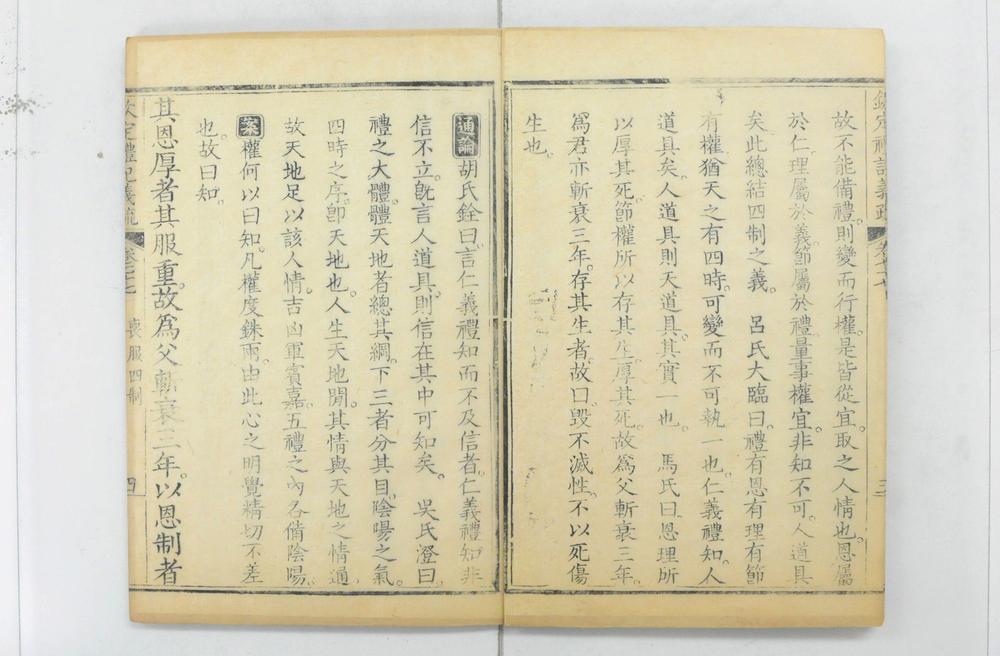 欽定禮記義疏 卷七十七 三
故不能備禮。則變而行權。是皆從宜。取之人情也。恩屬
於仁。理屬於義。節屬於禮。量事權宜。非知不可。人道具
矣。此總結四制之義　呂氏大臨曰。禮有恩有理有節
有權。猶天之有四時。可變而不可執一也。仁義禮知。人
道具矣。人道具則天道具。其實一也。　馬氏曰。恩理所
以厚其死。節權所以存其生。厚其死。故爲父斬衰三年。
爲君亦斬衰三年。存其生者。故曰毀不滅性。不以死傷
生也。
通論 胡氏銓曰。言仁義禮知而不及信者。仁義禮知非
信不立。旣言人道具。則信在其中可知矣。　吳氏澄曰。
禮之大體。體天地者總其綱。下三者分其目。陰陽之氣。
四時之序。卽天地也。人生天地閒。其情與天地之情通。
故天地足以該人情。吉凶軍賓嘉。五禮之內。各備陰陽。
案 權何以曰知。凡權度銖兩。由此心之明覺精切不差
也。故曰知。
其恩厚者其服重。故爲父斬衰三年。以恩制者
欽定禮記義疏 卷七十七 喪服四制 四